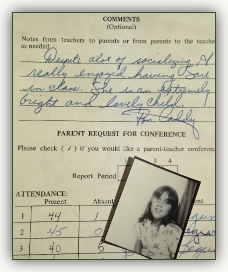 COMMENTS
(Optional)
Notes from teachers to parents or from parents to the teache
as needed.
Despite alot of socializing I
really enjoyed having
in class. She is an extremely
bright and lovely child.
PARENT REQUEST FOR CONFERENCE
Please check (✓) if you would like a parent-teacher conference.
3 4
Report Period
ATTENDANCE:
Present Absent
1 44 1
2 45 0
3 40 5